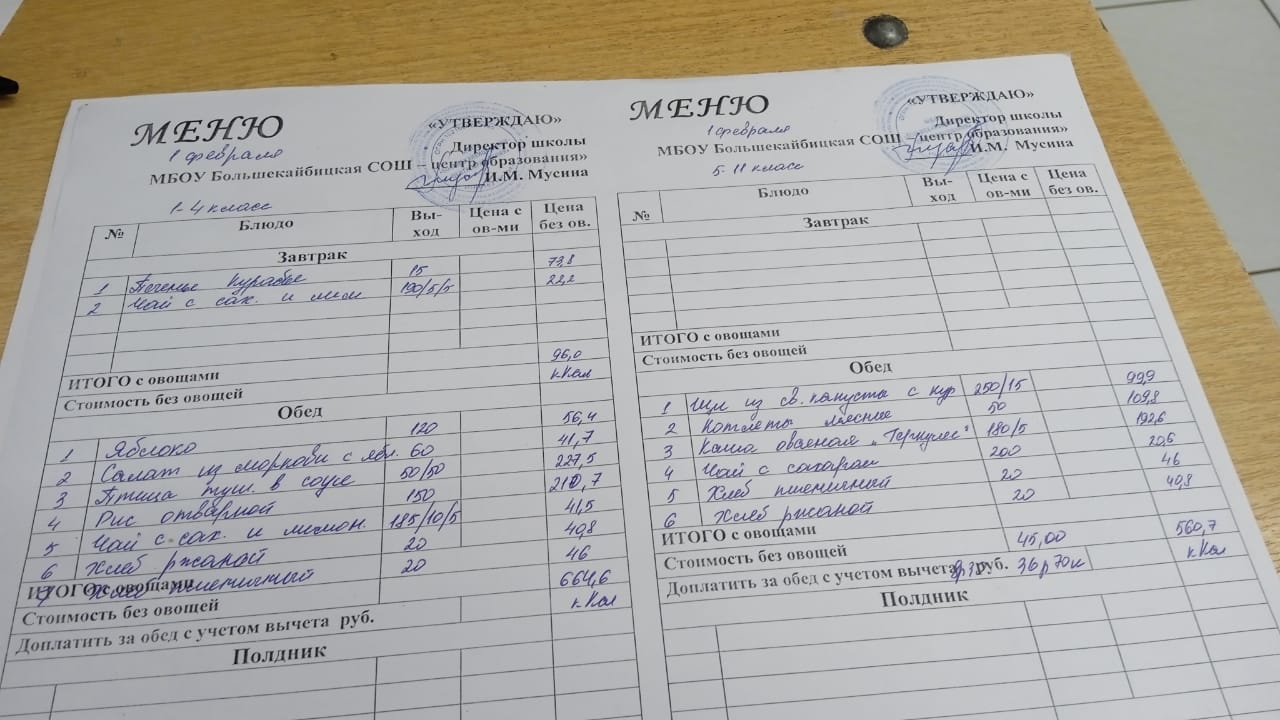 МЕНЮ
«УТВЕРЖДАЮ»
1 февраля
Директор школы
МБОУ Большекайбицкая СОШ – центр образования»
И.М. Мусина
1-4 класс
№ Блюдо Вы-ход Цена с ов-ми Цена без ов.
Завтрак
1 Печенье курабье 15 73,8
2 Чай с сах. и лим 190/5/5 22,2
ИТОГО с овощами 96,0
Стоимость без овощей кКал
Обед
1 Яблоко 120 56,4
2 Салат из моркови с ябл. 60 41,7
3 Птица туш. в соусе 50/50 227,5
4 Рис отварной 150 210,7
5 Чай с сах. и лимон. 185/10/5 41,5
6 Хлеб ржаной 20 40,8
7 Хлеб пшеничный 20 46
ИТОГО с овощами 664,6
Стоимость без овощей кКал
Доплатить за обед с учетом вычета руб.
Полдник
МЕНЮ
«УТВЕРЖДАЮ»
1 февраля
Директор школы
МБОУ Большекайбицкая СОШ – центр образования»
И.М. Мусина
5-11 класс
№ Блюдо Вы-ход Цена с ов-ми Цена без ов.
Завтрак
ИТОГО с овощами
Стоимость без овощей
Обед
1 Щи из св. капусты с кур 250/15 99,9
2 Котлеты мясные 50 109,8
3 Каша овсяная „Геркулес" 180/5 192,6
4 Чай с сахаром 200
5 Хлеб пшеничный 20 46
6 Хлеб ржаной 20 40,8
ИТОГО с овощами
Стоимость без овощей 45,00 560,7
Доплатить за обед с учетом вычета руб. 36р 70к кКал
Полдник